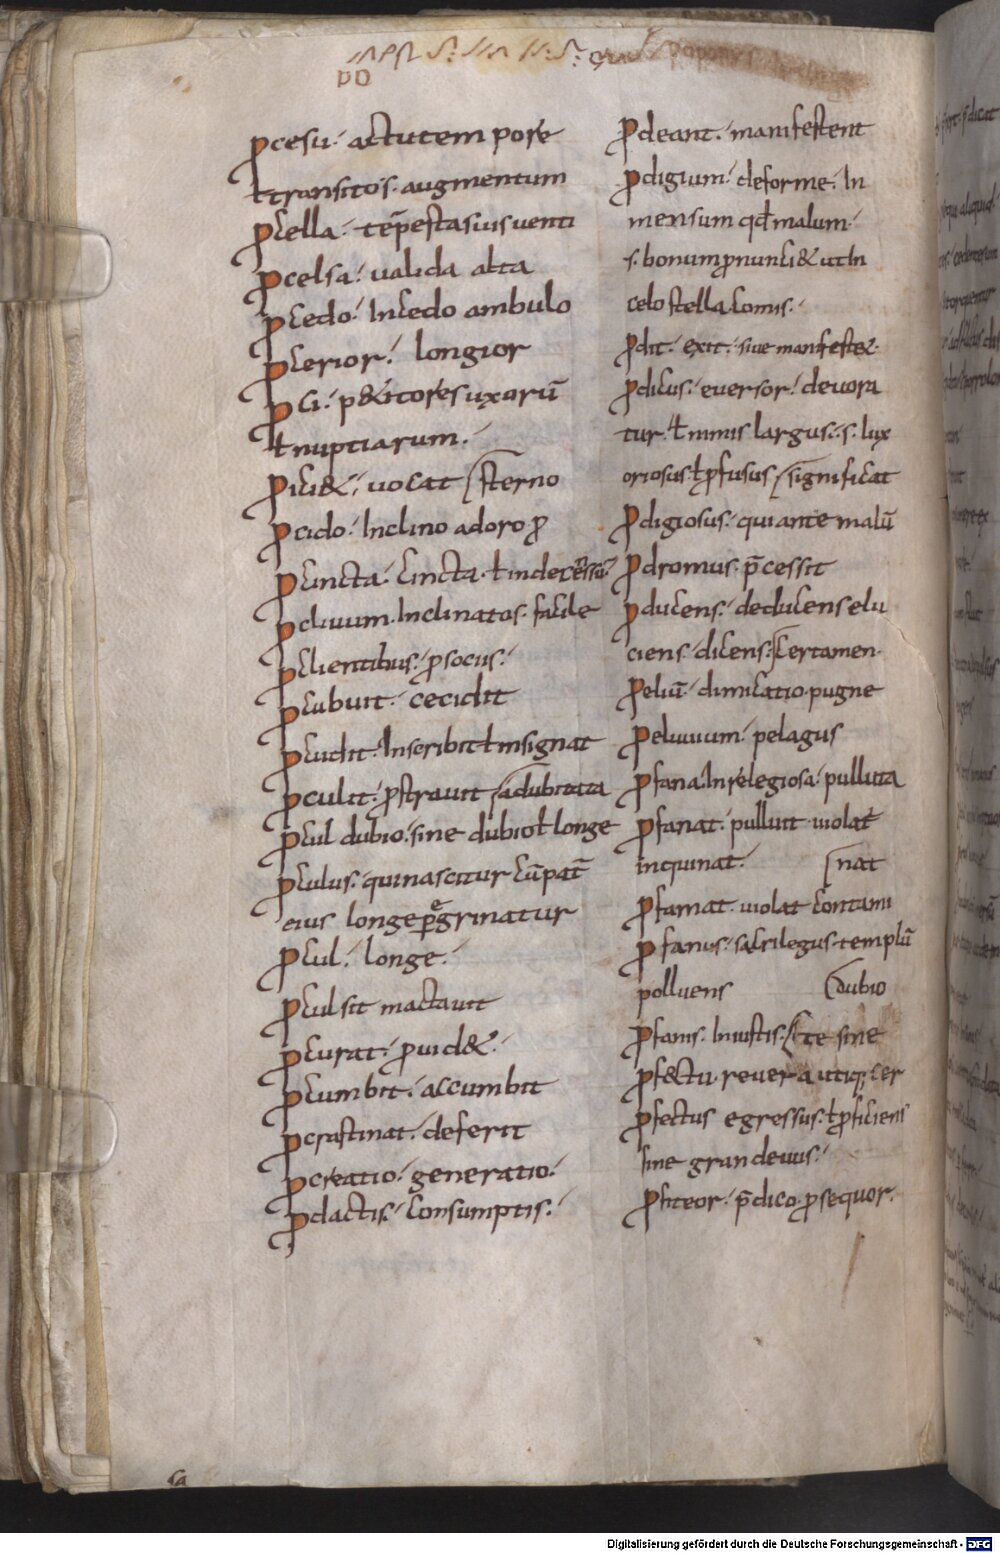 po
ꝓcesu. actu tempore
ł transitos. augmentum
ꝓcella. tēpestas uis uenti
ꝓcelsa. ualida alta
ꝓcedo. Incedo ambulo
ꝓcerior. longior
ꝓci. p&itores uxorū
ł nuptiarum.
ꝓici&. uocat sterno
ꝓcido. Inclino adoro ꝓ
ꝓcincta. cincta. ł
ꝓcliuum. Inclinatos. facile
ꝓclientibus. ꝓ socus.
ꝓcubuit. cecidit
ꝓcudit. Inscribit ł insignat
ꝓculit. ꝓstrauit adubitata
ꝓcul dubio. sine dubio ł longe
ꝓculus. qui nascitur cū pat̄
eius longe ꝑegrinatur
ꝓcul. longe.
ꝓculsit mactauit
ꝓcurat. ꝓuid&.
ꝓcumbit. accumbit
ꝓcrastinat. deferit
ꝓcreatio. generatio.
ꝓdactis. consumptis.
ꝓdeant. manifestent
ꝓdigium. deforme. In
mensum qd̄ malum.
s. bonum ꝓnunci& ut In
celo stella comis.
ꝓdit. exit. siue manifest&.
ꝓdicus. euersor. deuora
tur. ł nimis largus. s. lux
oriosus. ł ꝓfusus significat
ꝓdigiosus. qui ante malū
ꝓdromus. p̄cessit
ꝓducens. deducens elu
ciens. dicens. certamen.
ꝓeliū. dimicatio. pugne
ꝓeluuium. pelagus
ꝓfana. Inrelegiosa. polluta
ꝓfanat. polluit uiolat
inquinat. nat
ꝓfamat. uiolat contami
ꝓfanus. sacrilegus. templū
polluens dubio
ꝓfanis. Iniustis. te sine
ꝓf&tu. reuera utiq; cer
ꝓfectus egressus. ł ꝓficiens
siue grandeuus.
ꝓfiteor. p̄dico. ꝓsequor.
sa
Digitalisierung gefördert durch die Deutsche Forschungsgemeinschaft - DFG